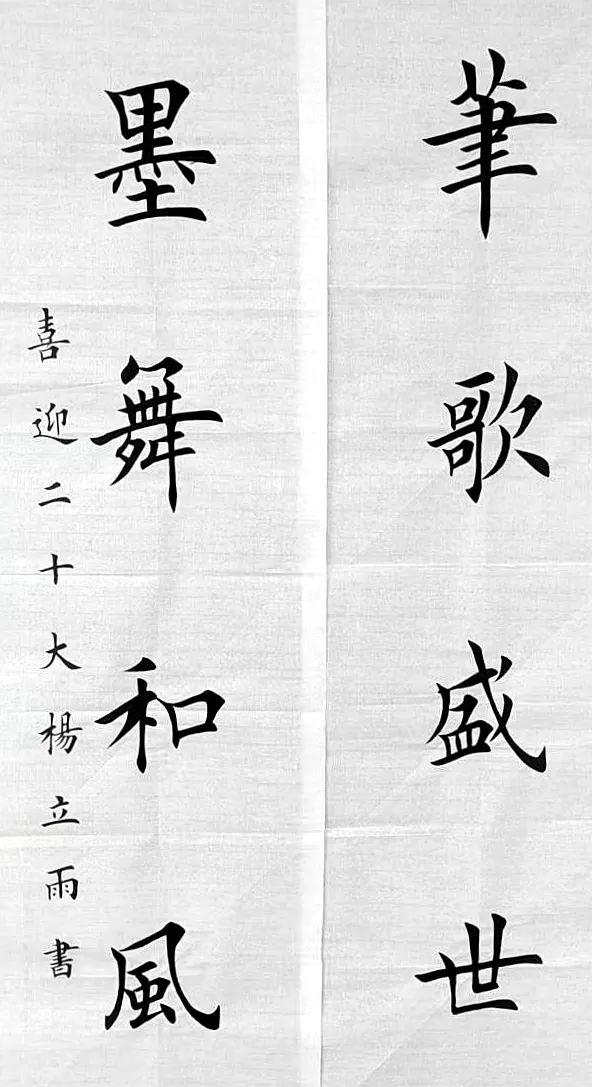 筆歌盛世
墨舞和風
喜迎二十大楊立雨书